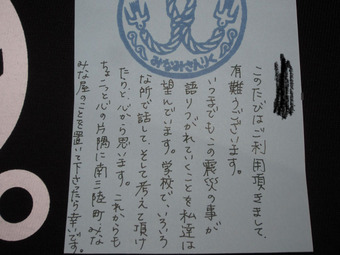 みなみさんりく
このたびはご利用頂きまして、
有難うございます。
いつまでも、この震災の事が
語りつがれていくことを私達は
望んでいます。学校で、いろいろ
な所で話して、そして考えて頂け
たらと、心から思います。これからも
ちょこっと心の片隅に南三陸町みな
みな屋のことを置いて下さったら幸いです。